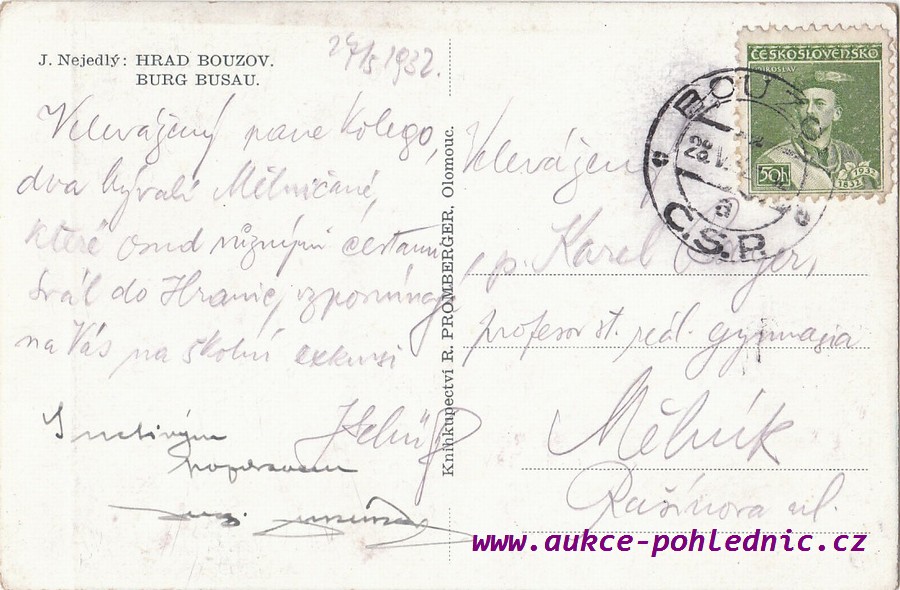 J. Nejedlý: HRAD BOUZOV.
BURG BUSAU.
1932.
Velevážený pane kolego,
dva bývalí Mělničané,
které osud různými cestami
svál do Hranic, vzpomínají
na Vás na školní exkursi
S uctivým
pozdravem
Knihkupectví R. PROMBERGER, Olomouc.
ČESKOSLOVENSKO
50h
1832
1932
BOUZOV
Č.S.P.
a
Velevážený
p. Karel
profesor st. reál. gymnasia
Mělník
Rašínova ul.
www.aukce-pohlednic.cz